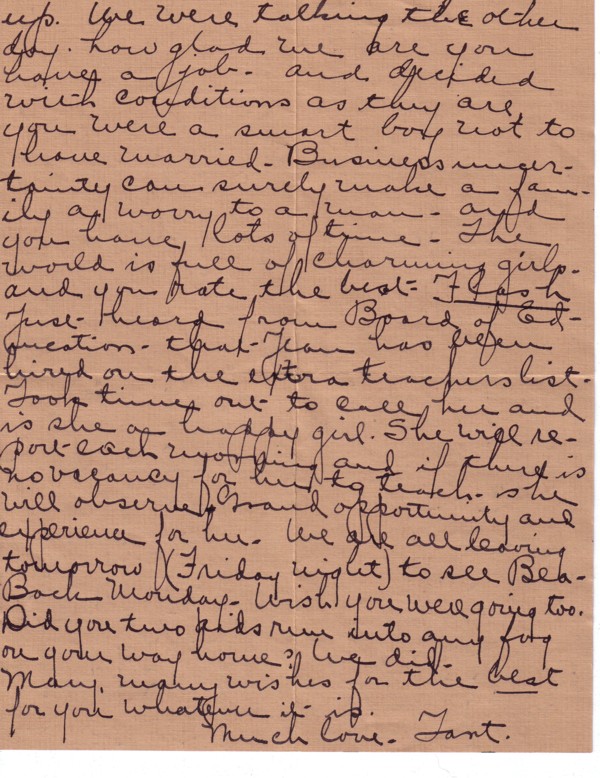 up. We were talking the other
day. how glad we are you
have a job - and decided
with conditions as they are,
you were a smart boy not to
have married - Business uncer-
tainty can surely make a fam-
ily a worry to a man - and
you have lots of time - The
world is full of charming girls -
and you rate the best - Flash
Just heard from Board of Ed-
ucation - that Jean has been
hired on the extra teachers list -
Took time out to call her and
is she a happy girl. She will re-
port each morning and if there is
no vacancy for her to teach - she
will observe. Grand opportunity and
experience for her - We are all leaving
tomorrow (Friday night) to see Bea -
Back Monday - Wish you were going too.
Did you two kids run into any fog
on your way home? We did -
Many, many wishes for the best
for you whatever it is.
Much love - Tant.